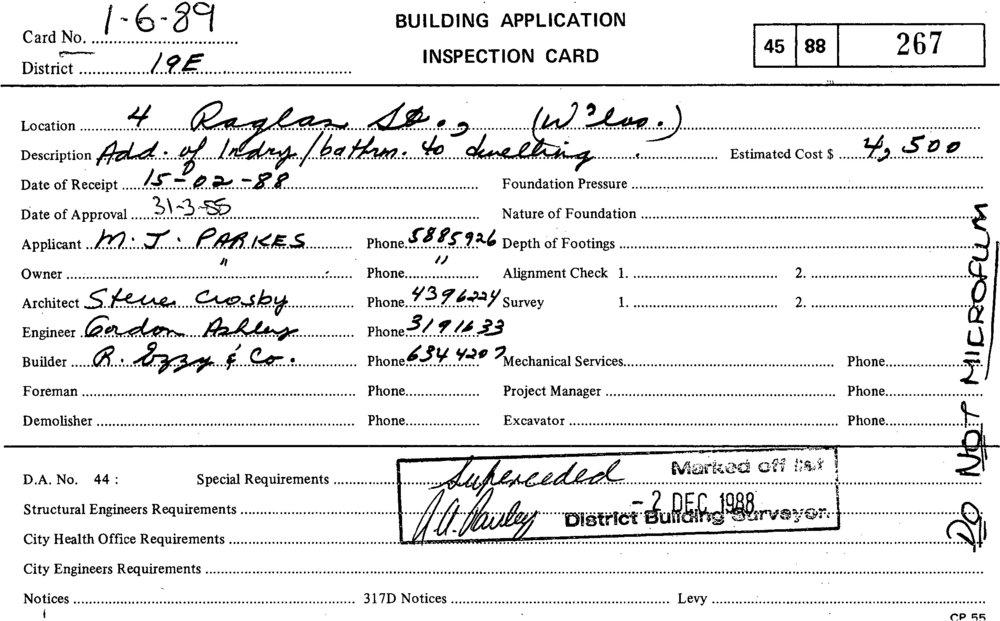 Card No. 1-6-89
BUILDING APPLICATION
INSPECTION CARD
45 88 267
District 19E
Location 4 Raglan St., (W'loo.)
Description Add. of lndry/bathrm. to dwelling. Estimated Cost $ 4,500
Date of Receipt 15-02-88 Foundation Pressure
Date of Approval 31-3-88 Nature of Foundation
Applicant M. J. PARKES Phone 5885926 Depth of Footings
Owner " Phone " Alignment Check 1. 2.
Architect Steve Crosby Phone 4396224 Survey 1. 2.
Engineer Gordon Ashley Phone 3191633
Builder R. Ezzy & Co. Phone 634 4207 Mechanical Services Phone
Foreman Phone Project Manager Phone
Demolisher Phone Excavator Phone
DO NOT MICROFILM
D.A. No. 44 : Special Requirements Superceded Marked off list
Structural Engineers Requirements - 2 DEC 1988
District Building Surveyor.
City Health Office Requirements
City Engineers Requirements
Notices 317D Notices Levy
CP 55